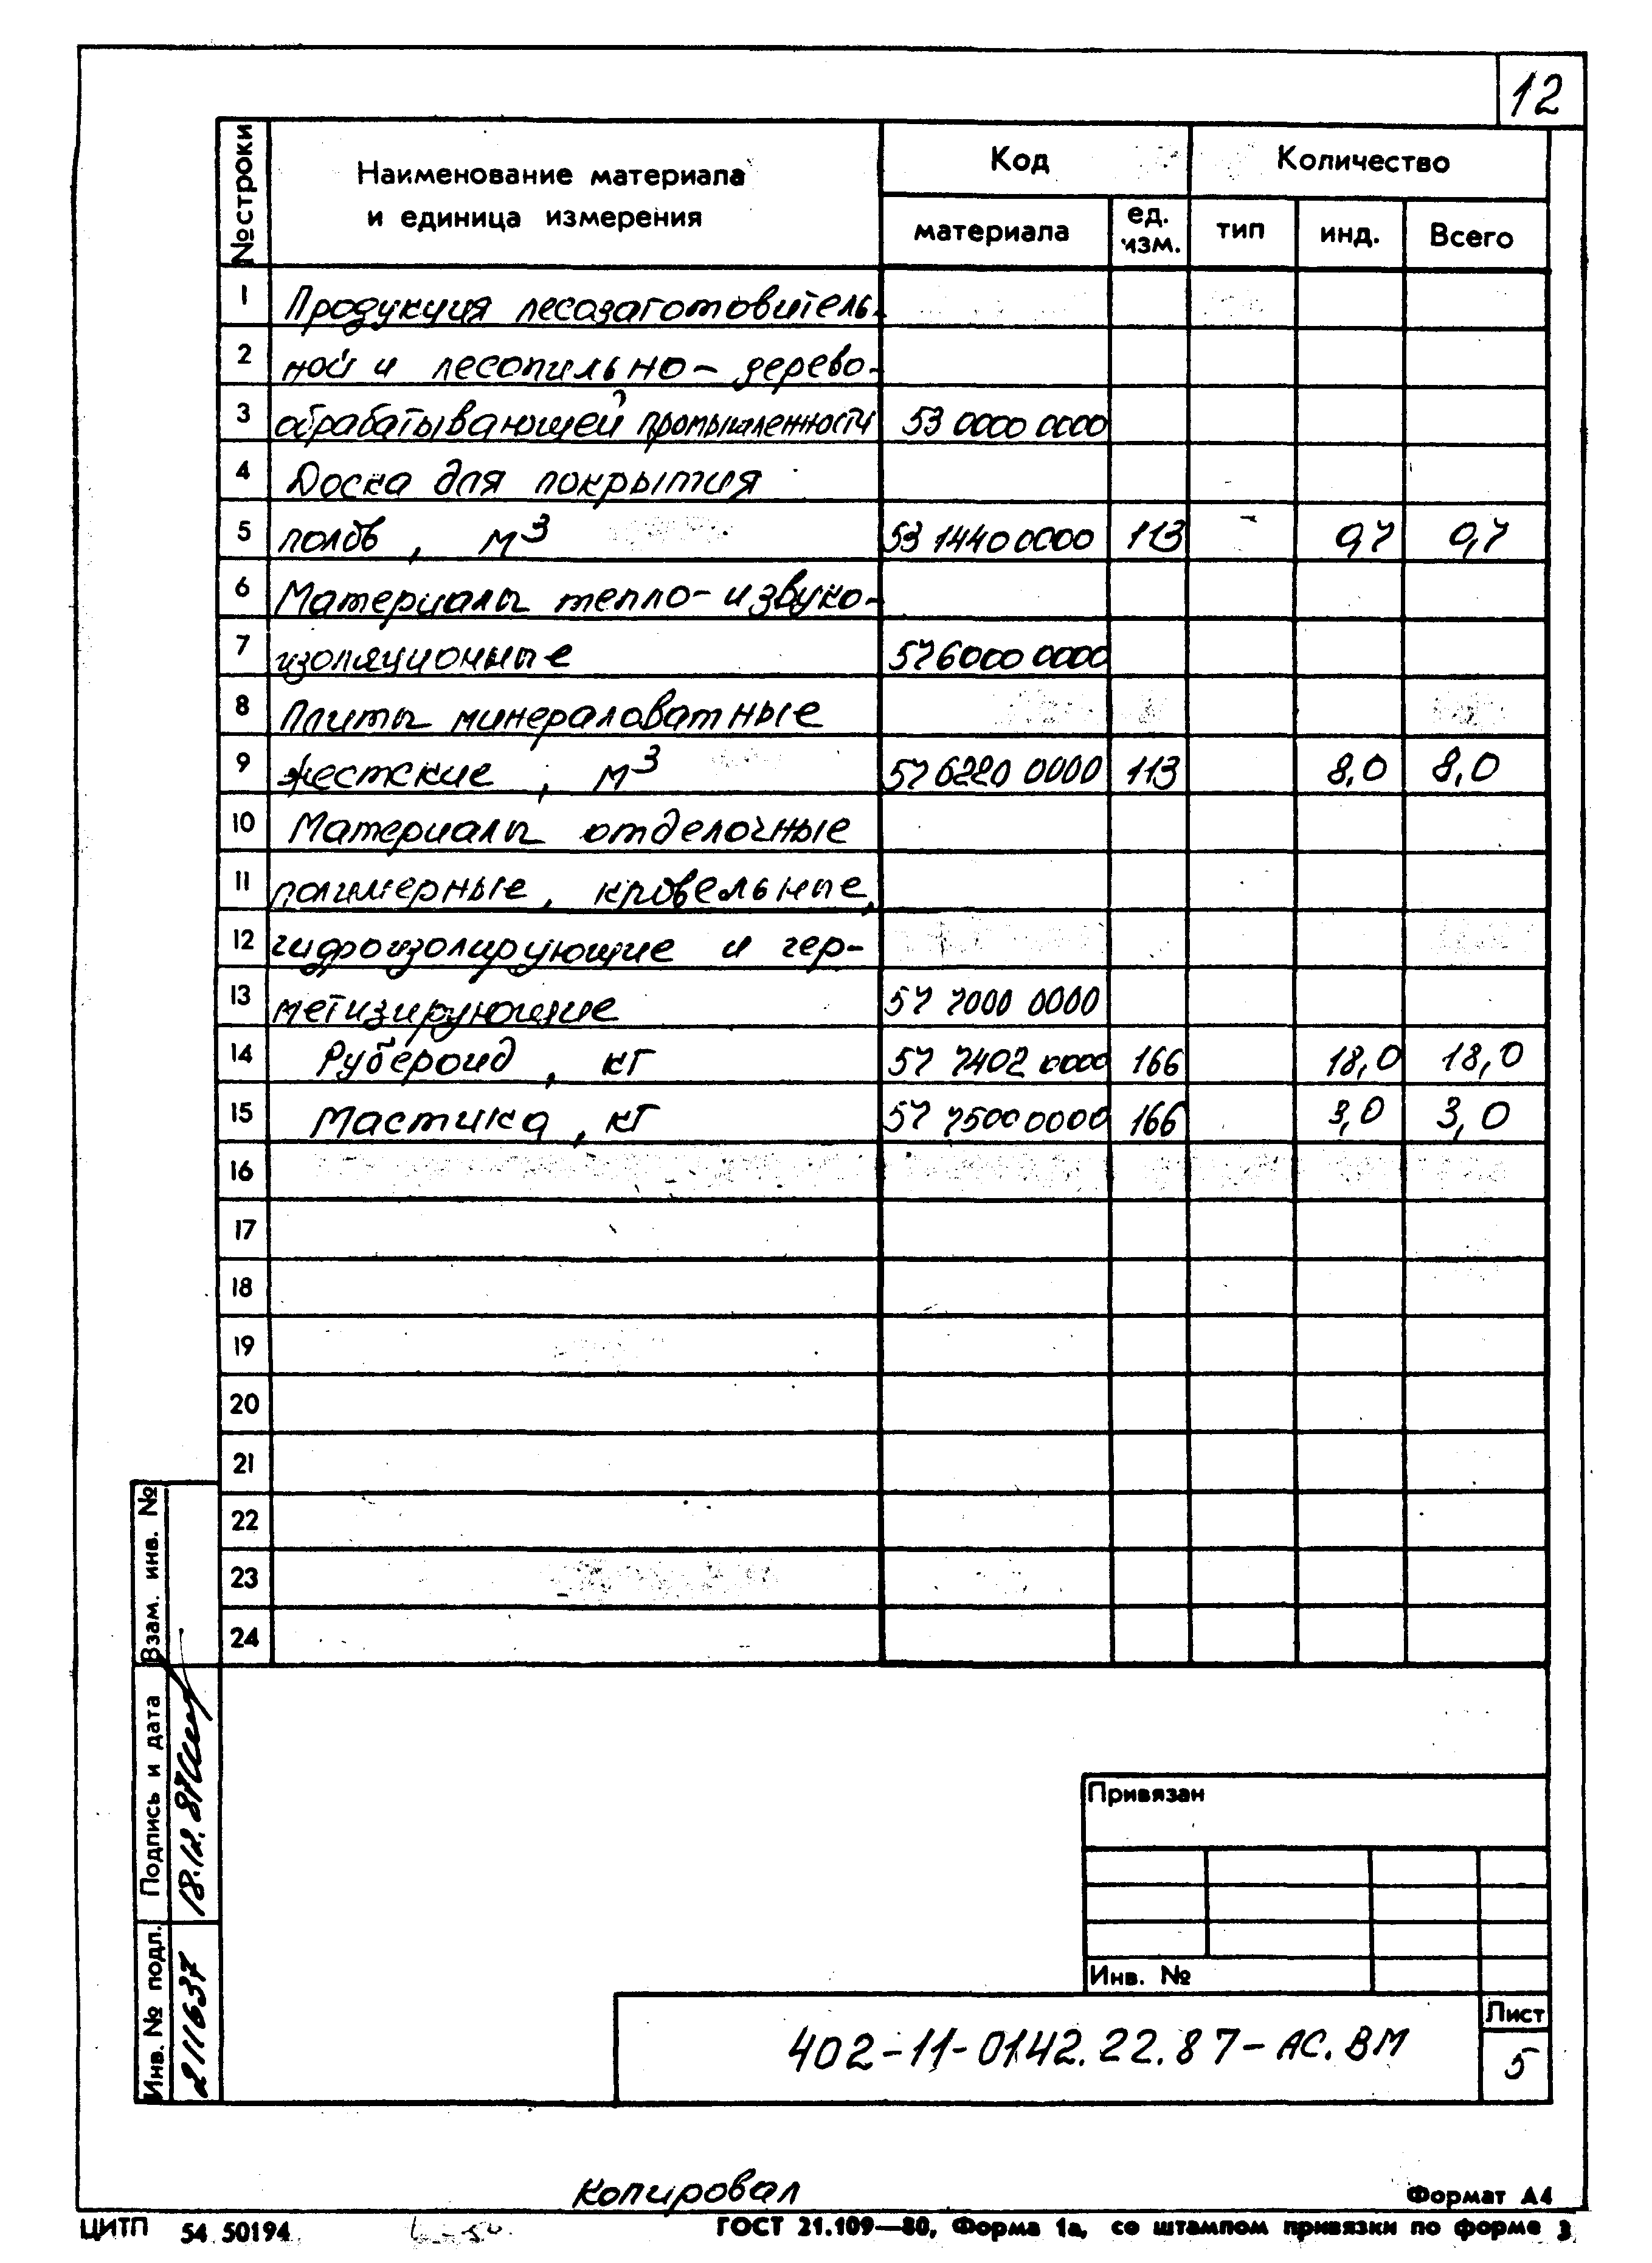 12
№ строки
Наименование материала
и единица измерения
Код
Количество
материала
ед.
изм.
тип
инд.
Всего
1 Продукция лесозаготовитель-
2 ной и лесопильно-дерево-
3 обрабатывающей промышленности 53 0000 0000
4 Доска для покрытия
5 полов, м³ 53 1440 0000 113 - 0,7 0,7
6 Материалы тепло- и звуко-
7 изоляционные 57 6000 0000
8 Плиты минераловатные
9 жесткие, м³ 57 6220 0000 113 8,0 8,0
10 Материалы отделочные
11 полимерные, кровельные,
12 гидроизолирующие и гер-
13 метизирующие 57 7000 0000
14 Рубероид, кг 57 7402 0000 166 18,0 18,0
15 Мастика, кг 57 7500 0000 166 3,0 3,0
16
17
18
19
20
21
22
23
24
Взам. инв. №
Подпись и дата
18.12.87
Инв. № подл.
211637
Привязан
Инв. №
402-11-0142.22.87-АС.ВМ
Лист
5
Копировал
Формат А4
ЦИТП 54 50194
ГОСТ 21.109—80, Форма 1а, со штампом привязки по форме 3